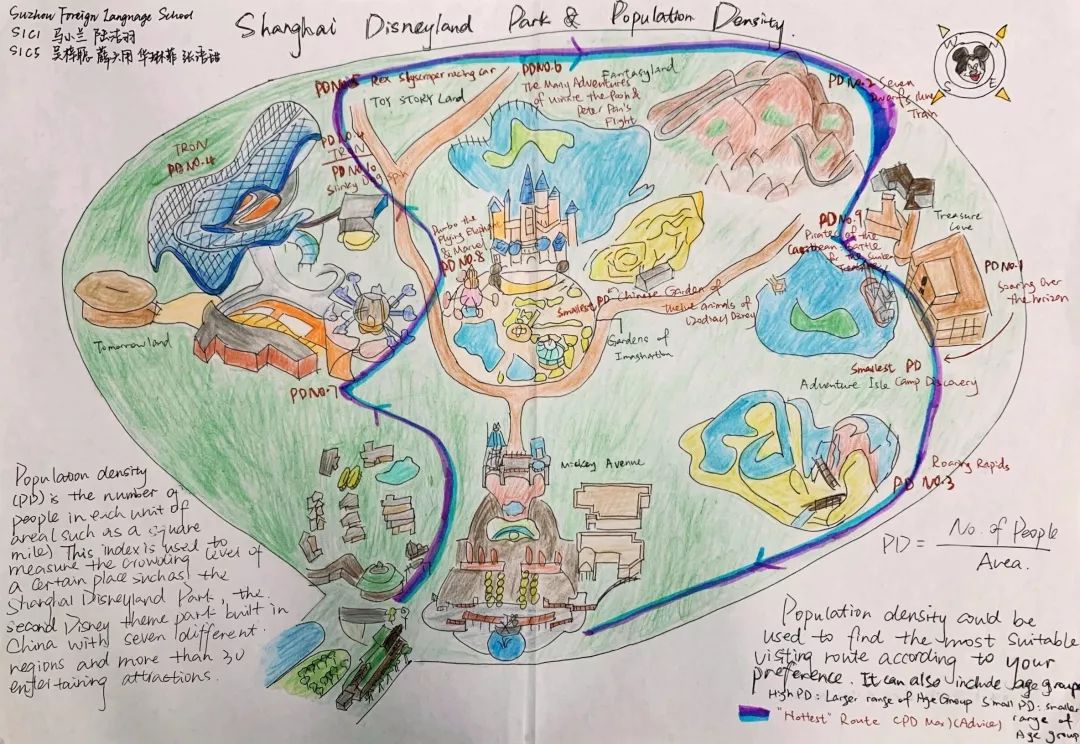 Suzhou Foreign Language School
S1C1 马小兰
S1C5
Shanghai Disneyland Park & Population Density.
N
W
S
E
PD NO.5 Rex Skyscraper racing car
TOY STORY Land
PD NO.6
The Many Adventures
of Winnie the Pooh &
Peter Pan's
Flight
Fantasyland
PD NO.2 Seven
Dwarfs Mine
Train
TRON
PD NO.4
PD NO.4
TRON
PD NO.10
Slinky Dog Spin
Dumbo the
Flying Elephant
& Marvel
PD NO.8
PD NO.9
Pirates of the
Caribbean: Battle
for the Sunken
Treasure
Treasure
Cove
PD NO.1
Soaring Over
the Horizon
Smallest PD Chinese Garden of
Twelve Animals of
Zodiac) Disney
Gardens of
Imagination
Tomorrowland
Smallest PD
Adventure Isle Camp Discovery
PD NO.7
Mickey Avenue
Roaring Rapids
PD NO.3
Population density
(PD) is the number of
people in each unit of
area( such as a square
mile) This index is used to
measure the crowding level of
a certain place such as the
Shanghai Disneyland Park, the
second Disney theme park built in
China with seven different
regions and more than 30
entertaining attractions.
PD = No. of People
Area.
Population density could be
used to find the most suitable
visting route according to your
preference. It can also include age group
High PD: Larger range of Age Group Small PD: smaller
range of
Age group
"Hottest" Route (PD Max) (Advice)